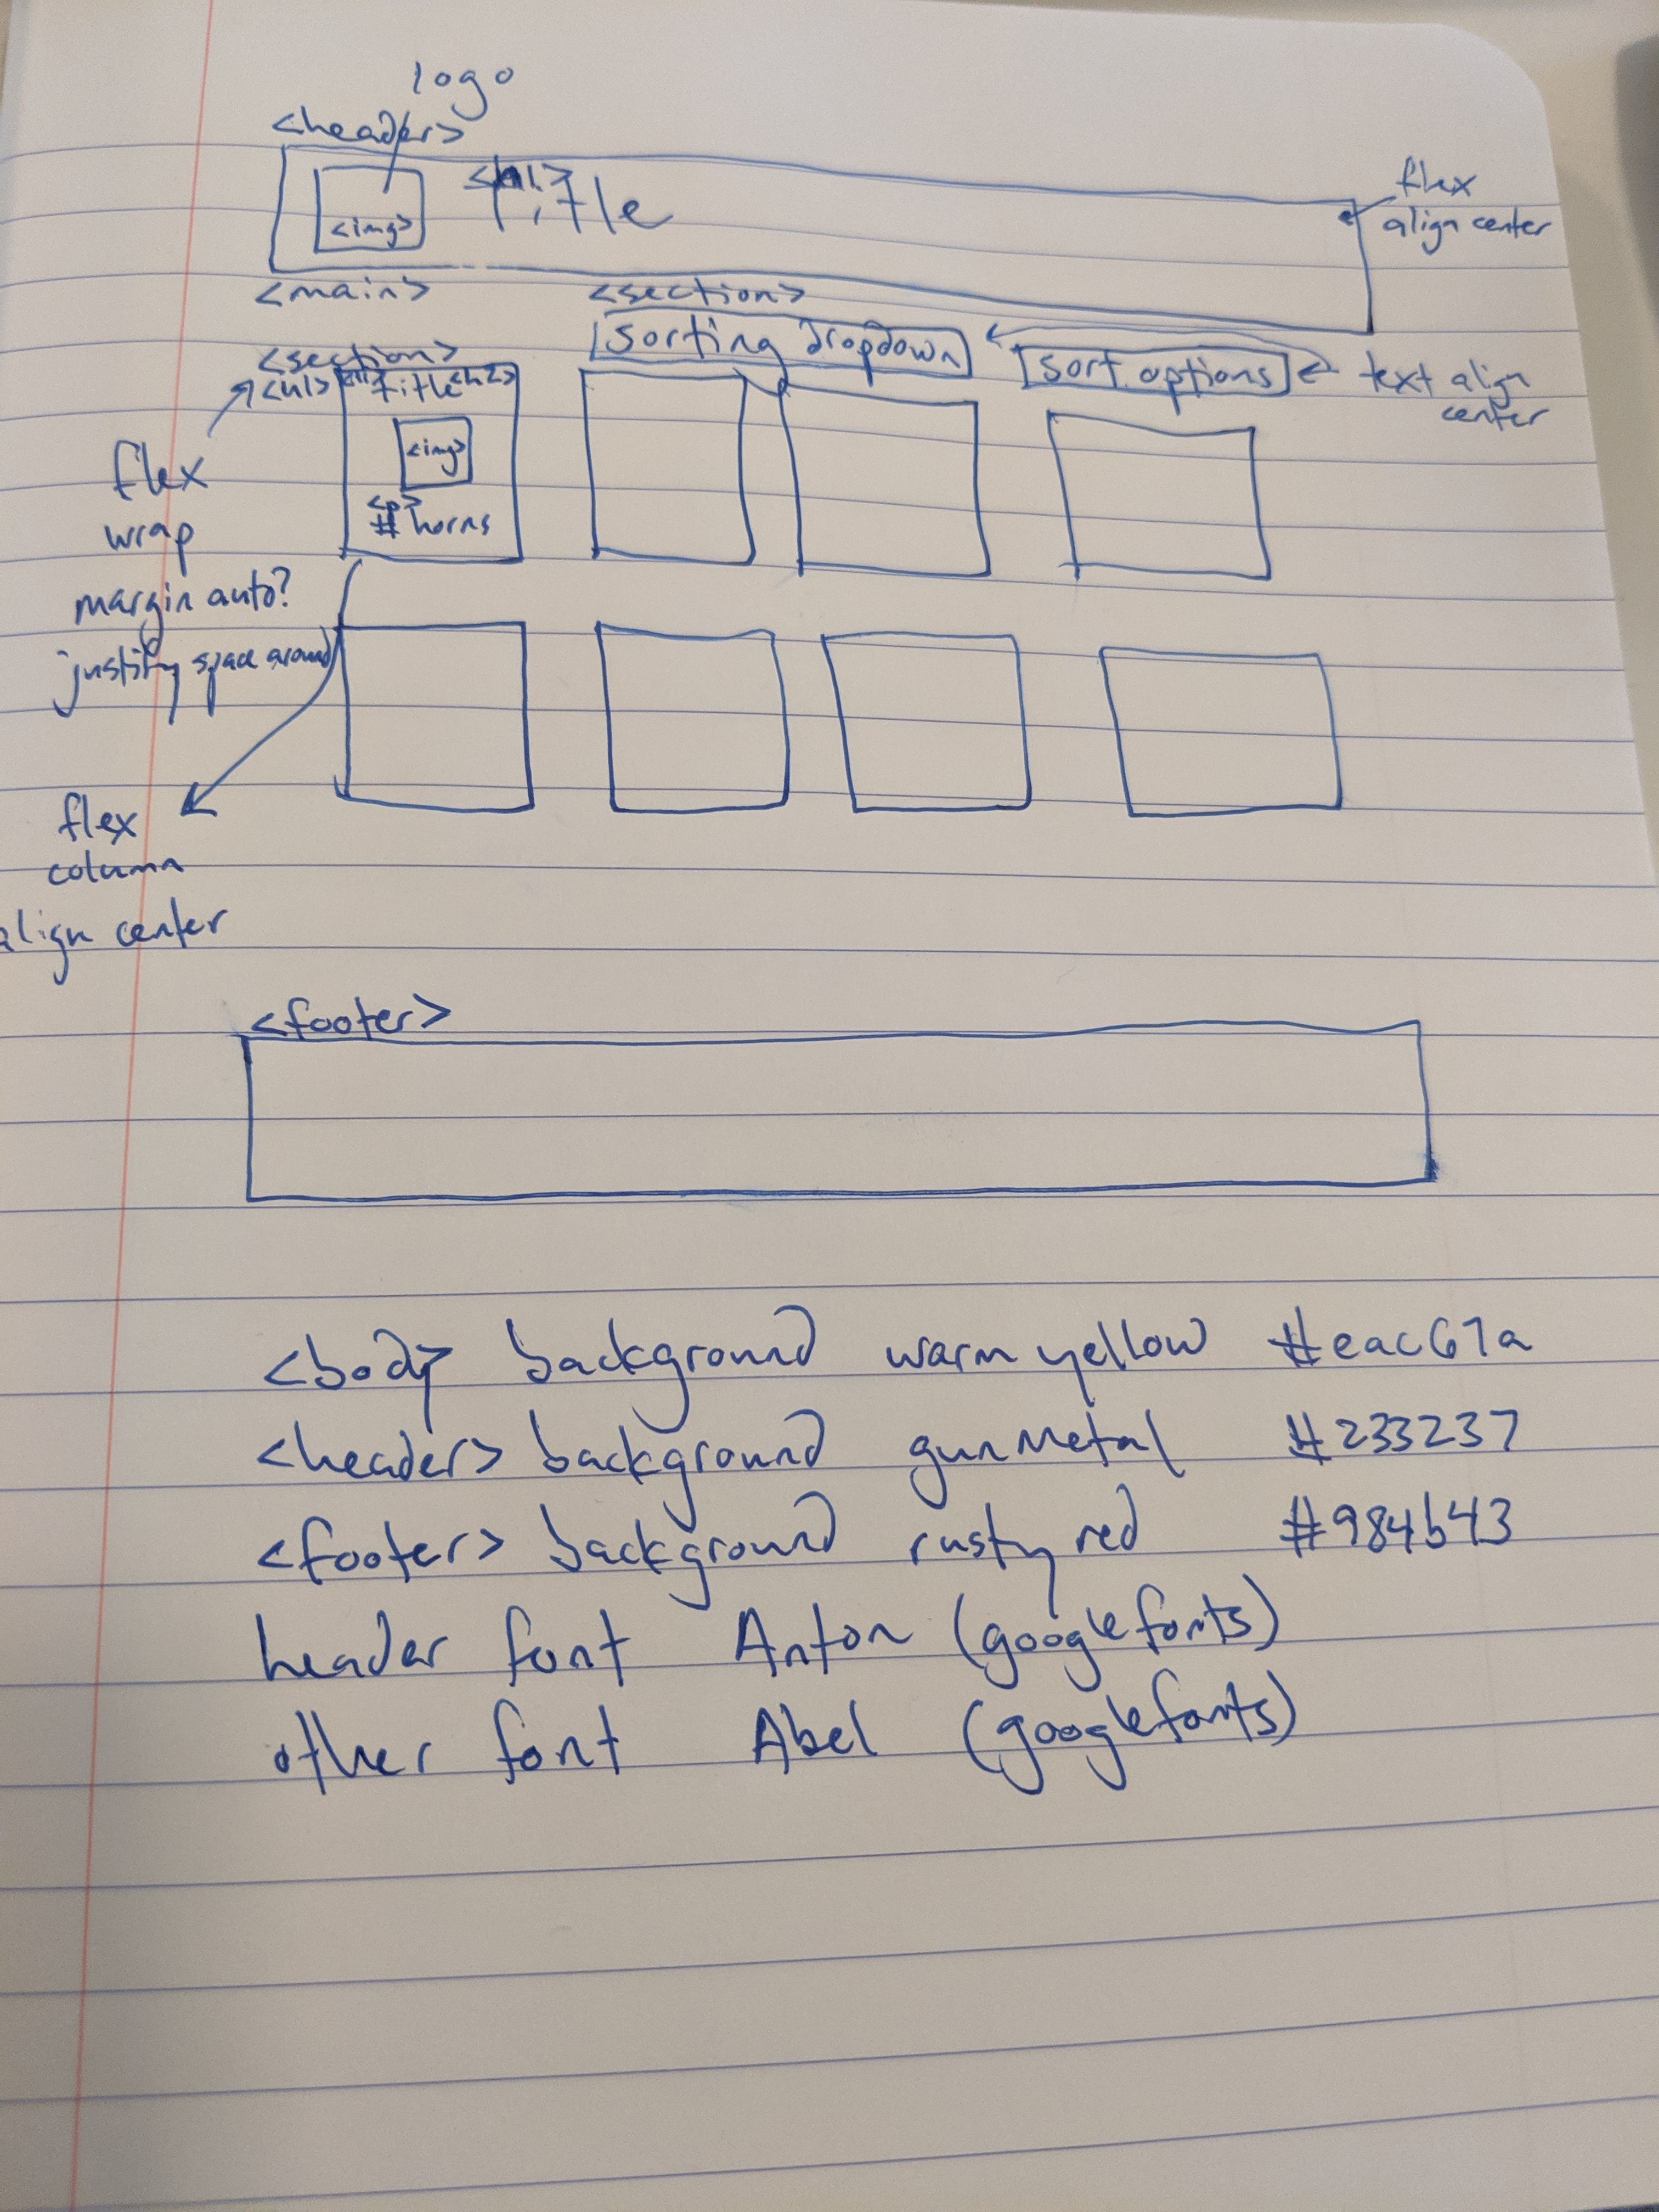 logo
<header>
<h1>
Title
<img>
flex
align center
<main>
<section>
sorting dropdown
sort options
text align
center
<section>
<ul>
<li>
title <h2>
<img>
<p>
# horns
flex
wrap
margin auto?
justify space around
flex
column
align center
<footer>
<body> background warm yellow #eac67a
<header> background gunmetal #233237
<footer> background rusty red #984b43
header font Anton (google fonts)
other font Abel (google fonts)